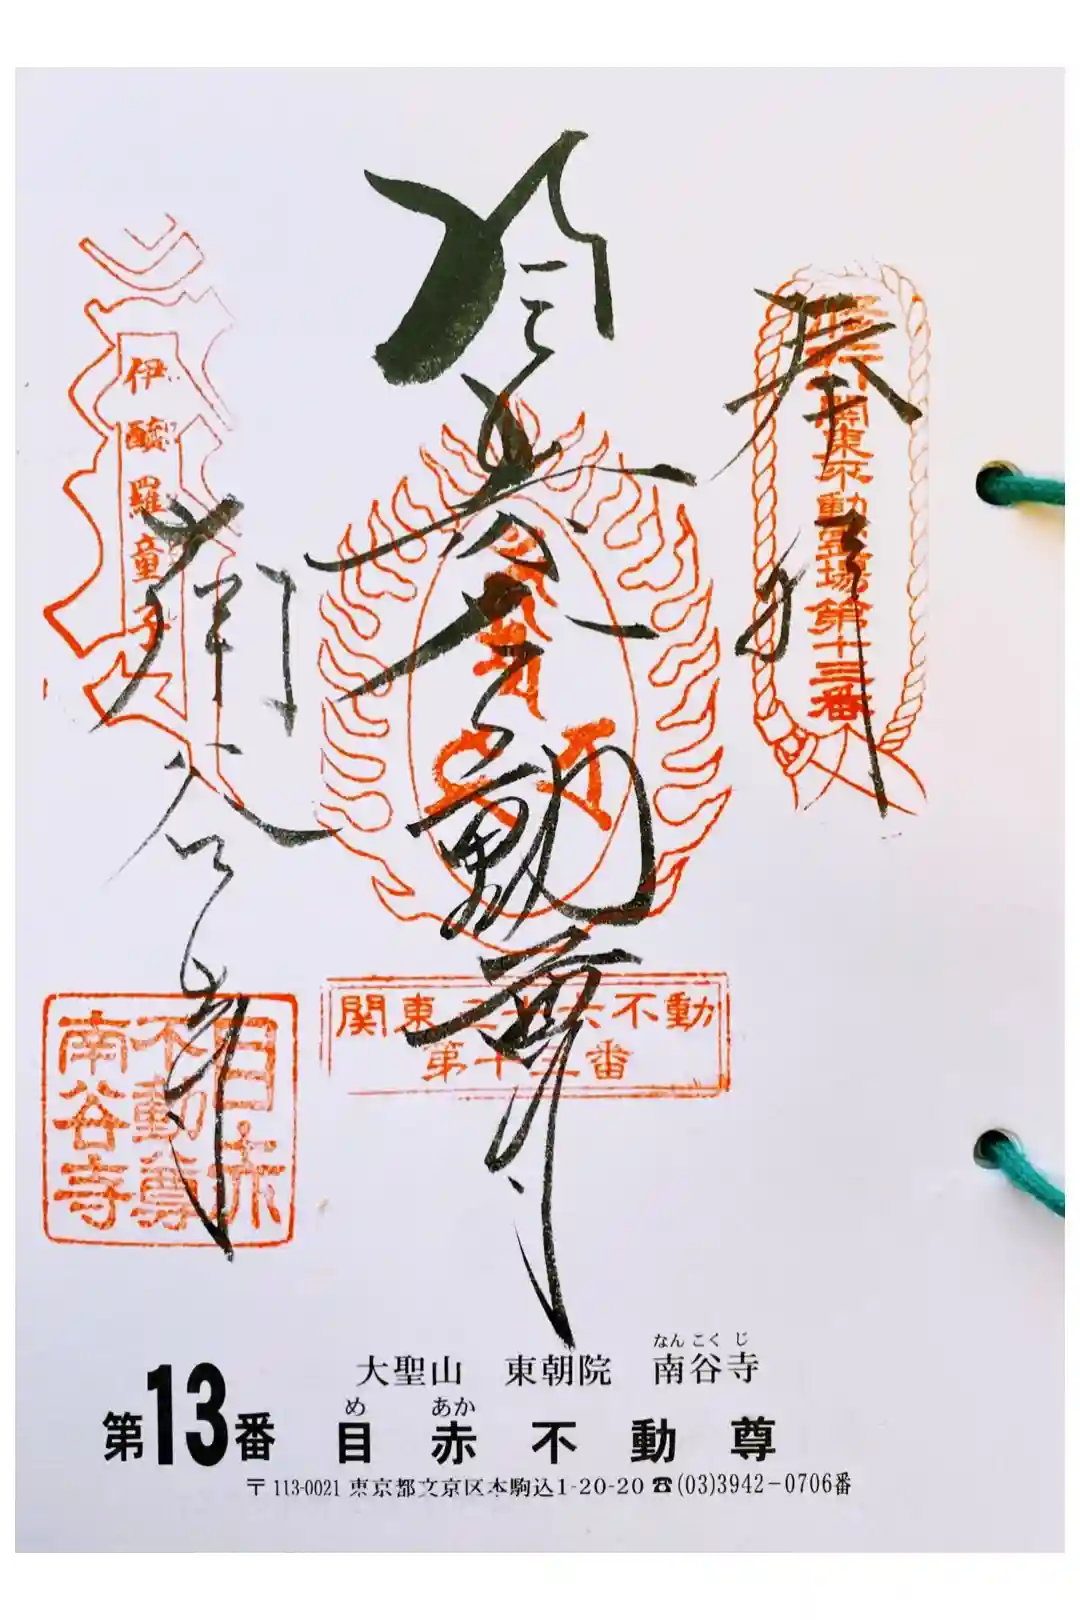 奉拝
関東不動霊場第十三番
目赤不動尊
不動尊
南谷寺
伊醯羅童子
関東三十六不動
第十三番
目赤
不動尊
南谷寺
大聖山 東朝院 南谷寺
なんこくじ
第13番 目赤不動尊
め あか
〒113-0021 東京都文京区本駒込1-20-20 ☎(03)3942-0706番